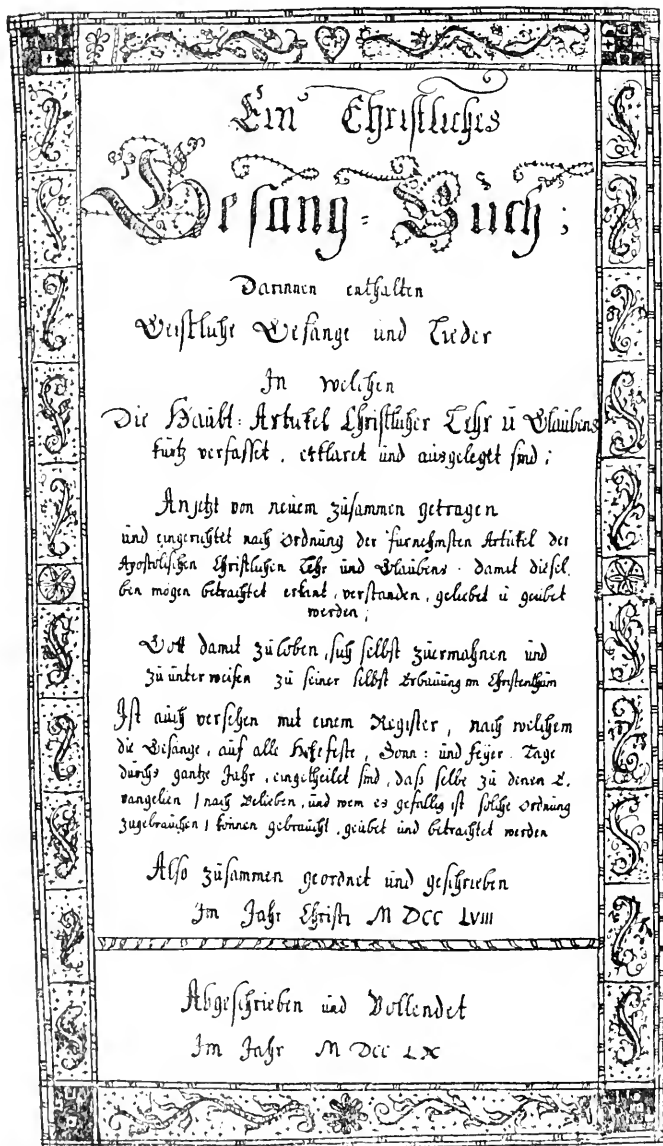 Ein Christliches
Gesang = Buch;
Darinnen enthalten
Geistliche Gesänge und Lieder
In welchen
Die Haubt = Artickel Christlicher Lehr ū Glaubens
kurtz verfasset, erkläret und ausgeleget sind;
Anjetzt von neuem zusammen getragen
und eingerichtet nach Ordnung der fürnehmsten Artickel der
Apostolischen Christlichen Lehr und Glaubens. damit diesel
ben mögen betrachtet erkent, verstanden, geliebet ū geübet
werden;
Gott damit zu loben, sich selbst zuermahnen und
zu unter weisen zu seiner selbst Erbauung im Christenthum
Ist auch versehen mit einem Register, nach welchem
die Gesänge, auf alle Hohefeste, Sonn = und Feyer Tage
durchs gantze Jahr, eingetheilet sind, dass selbe zu denen E.
vangelien / nach Belieben, und wem es gefällig ist solche Ordnung
zugebrauchen / können gebraucht, geübet und betrachtet werden
Also zusammen geordnet und geschrieben
Im Jahr Christi M DCC LVIII
Abgeschrieben und Vollendet
Im Jahr M DCC LX